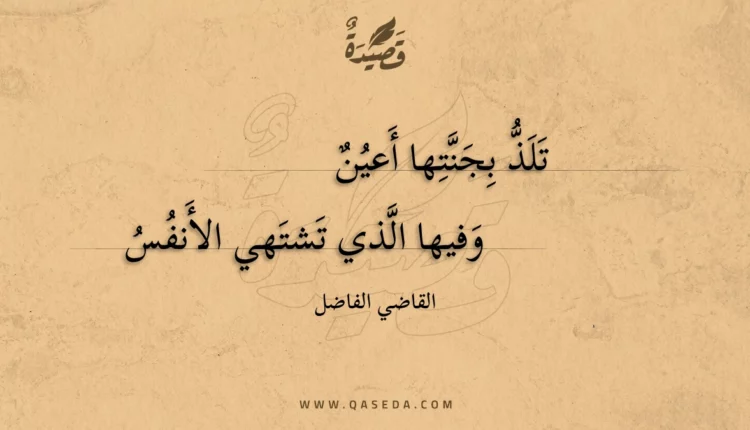 قَصِيدَةٌ
تَلَذُّ بِجَنَّتِها أَعيُنٌ
وَفيها الَّذي تَشتَهي الأَنفُسُ
القاضي الفاضل
WWW.QASEDA.COM